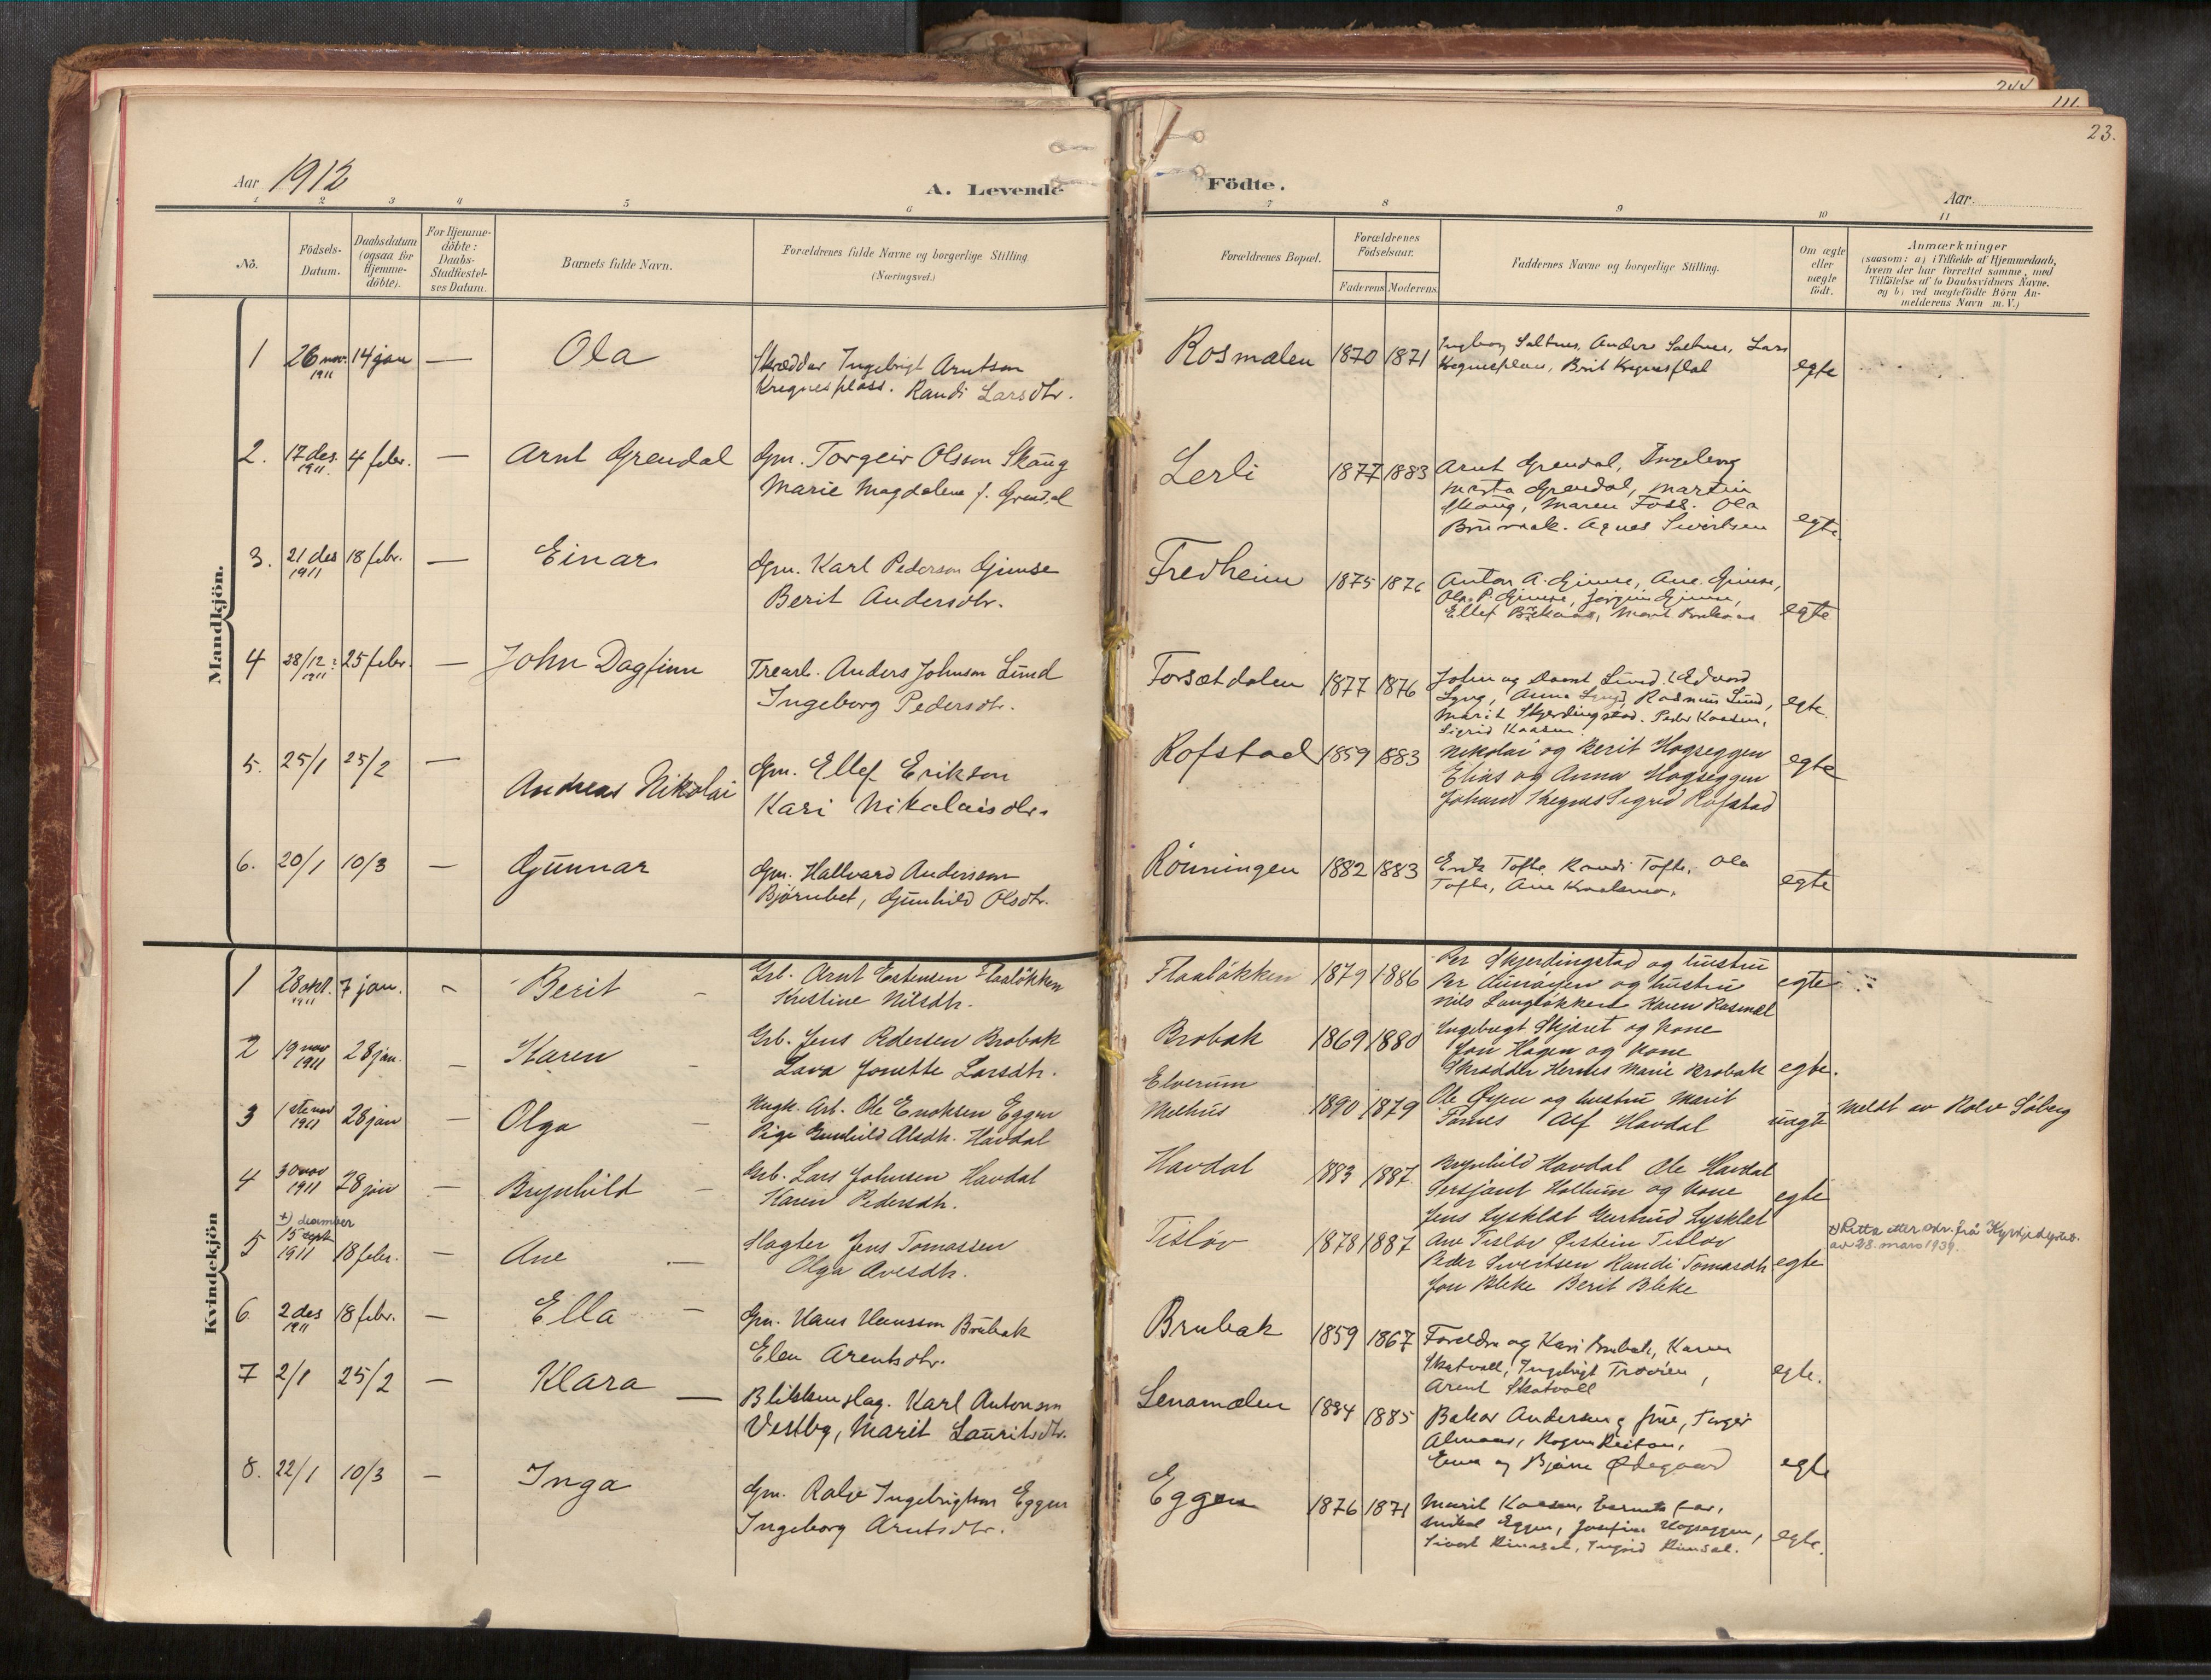 244
111.
23.
Aar 1912
A. Levende Födte.
Aar
1 2 3 4 5 6 7 8 9 10 11
Nö.
Födsels-
Datum.
Daabsdatum
(ogsaa for
Hjemme-
döbte).
For Hjemme-
döbte:
Daabs-
Stadfæstel-
ses Datum.
Barnets fulde Navn.
Forældrenes fulde Navne og borgerlige Stilling
(Næringsvei.)
Forældrenes Bopæl.
Forældrenes
Födselsaar.
Faderens Moderens
Faddernes Navne og borgerlige Stilling.
Om ægte
eller
uægte
födt.
Anmærkninger
(saasom: a) i Tilfælde af Hjemmedaab,
hvem der har forrettet samme, med
Tilföielse af to Daabsvidners Navne.
og b) ved uægtefödte Börn An-
melderens Navn m.V.)
Mandkjön.
1 26 nov. 14 jan — Ola
1911
Skrædder Ingebrigt Arntson
Kregnesplass. Randi Larsdtr.
Rosmælen 1870 1871
Ingeborg Saltnes, Anders Saltnes, Lars
Kregnesplass, Brit Kregnesplas
egte
2. 17 des. 4 febr. — Arnt Grendal
1911.
Gm. Torgeir Olsson Skaug
Marie Magdalene f. Grendal
Lerli 1877 1883
Arnt Grendal, Ingeborg
Marta Grendal, Martin
Skaug, Maren Foss. Ola
Agnes Sivertsen
egte.
3. 21 des 18 febr. — Einar
1911
Gm. Karl Pederson Gimse
Berit Andersdtr.
Fredheim 1875 1876
Anton A. Gimse, Ane Gimse,
Ola P. Gimse, Jørgine Gimse,
Ellef
egte
4 28/12 25 febr. — John Dagfinn
1911
Trearb. Anders Johnson Lund
Ingeborg Pedersdtr.
Forsætdalen 1877 1876
John og Lund. Edvard
Lyng, Anna Lyng, Rasmus Lund,
Marit Skjerdingstad. Peder Kaasen,
Sigrid Kaasen.
egte.
5. 25/1 25/2 — Andreas Nikolai
Gm. Ellef Erikson
Kari Nikolaisdtr.
Rofstad 1859 1883
Nikolai og Berit Hogseggen
Elias og Anna Hogseggen
Johan Kregnes Sigrid Rofstad
egte
6. 20/1 10/3 — Gunnar
Gm. Hallvard Anderson
Bjørnbet, Gunhild Olsdtr.
Rönningen 1882 1883
Tofte, Randi Tofte, Ola
Tofte, Ane
egte
Kvindekjön
1 28 okt. 7 jan. Berit
1911
Grb. Arnt Estensen Flaalökken
Kristine Nilsdtr.
Flaalökken 1879 1886
Per Skjerdingstad og hustru
Per og hustru
Nils Langløkken Karen Rosmæl
egte
2 19 nov 28 jan. Karen
1911
Grb. Jens Pedersen Brobak
Lava Jonette Larsdtr.
Brobak 1869 1880
Ingebrigt Skjøret og kone
Jon Hagen og kone
Skrædder Hernes Marie Brobak
egte.
3 1ste nov 28 jan — Olga
1911
Ungk. Arb. Ole Enoksen Eggen
Pige Gunhild Olsdtr. Havdal
Elverum
Melhus 1890 1879
Ole Øyen og hustru Marit
Alf Havdal
uægte
Meldt av Rolv Söberg
4 30 nov 28 jan — Brynhild
1911
Grb. Lars Johnsen Havdal
Karen Pedersdtr.
Havdal 1883 1887
Brynhild Havdal Ole Havdal
Sersjant Hollum og kone
Jens Lysklæt Gurtrud Lysklæt
egte
+) desember
5 15 sept 18 febr. — Ane
1911
Slagter Jens Tomassen
Olga Avesdtr.
Tislöv 1878 1887
Ane Tislöv Østein Tislöv
Peder Sivertsen Randi Tomasdtr
Jon Bleke Berit Bleke
egte
+) Retta etter skr. frå Kyrkjedept.
av 28. mars 1939.
6 2 des 18 febr. — Ella
1911
Gm. Hans Hansson Brubak
Elen Arentsdtr.
Brubak 1859 1867
Foreldra og Kari Brubak, Karen
Skatvoll, Ingebrigt
Arent Skatvoll
egte.
7 2/1 25/2 — Klara —
Blikkenslag. Karl Antonson
Vestby, Marit Lauritsdtr.
Lenamælen 1884 1885
Baker Andersen og frue, Torgeir
Almaas,
og Bjarne Ødegaard
egte
8. 22/1 10/3 — Inga
Gm. Rolv Ingebrigtson Eggen
Ingeborg Arntsdtr.
Eggen 1876 1871
Marit Kaasen,
Mikal Eggen, Josefine Hogseggen,
Sivert Rimsal, Ingrid Rimsal.
egte.